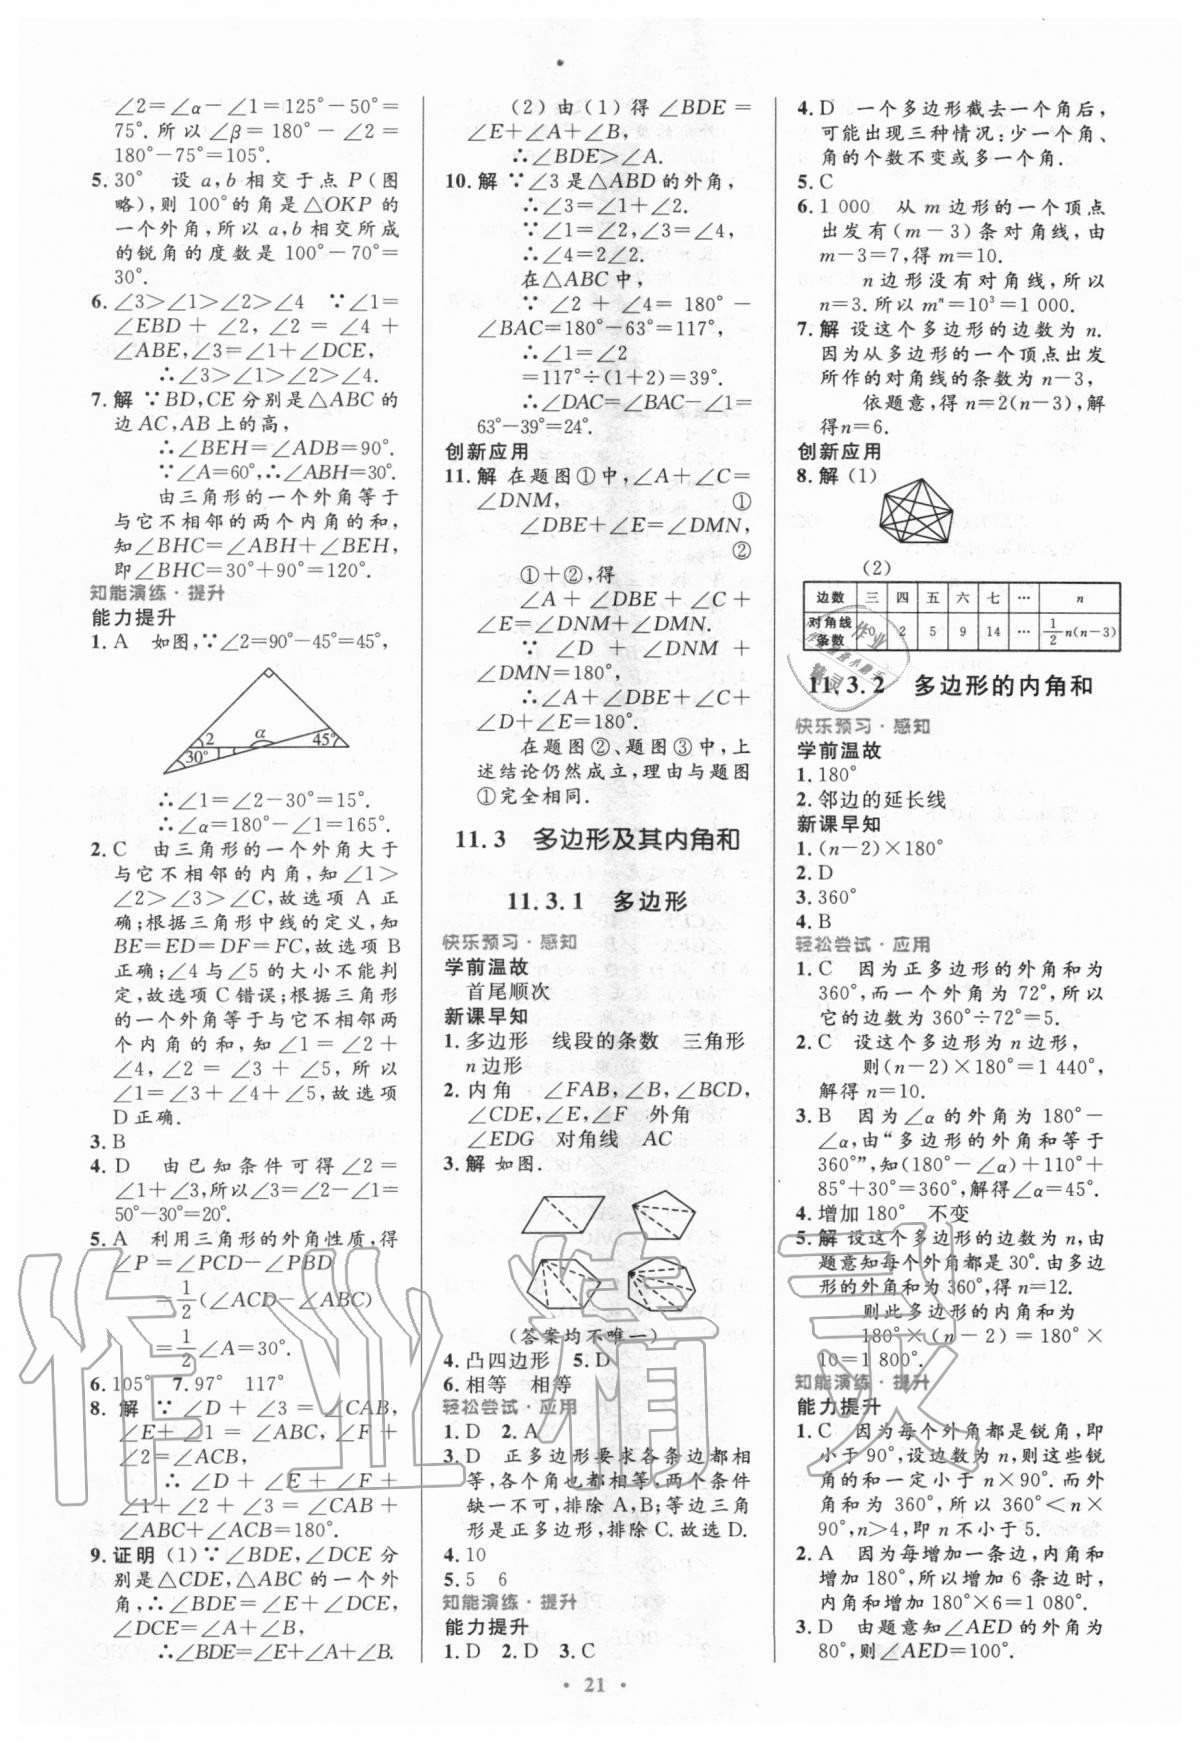 ∠2=∠α-∠1=125°-50°=
75°.所以∠β=180°-∠2=
180°-75°=105°.
5.30° 设a,b相交于点P(图
略),则100°的角是△OKP的
一个外角,所以a,b相交所成
的锐角的度数是100°-70°=
30°.
6.∠3>∠1>∠2>∠4 ∵∠1=
∠EBD+∠2,∠2=∠4+
∠ABE,∠3=∠1+∠DCE,
∴∠3>∠1>∠2>∠4.
7.解 ∵BD,CE分别是△ABC的
边AC,AB上的高,
∴∠BEH=∠ADB=90°.
∵∠A=60°,∴∠ABH=30°.
由三角形的一个外角等于
与它不相邻的两个内角的和,
知∠BHC=∠ABH+∠BEH,
即∠BHC=30°+90°=120°.
知能演练·提升
能力提升
1.A 如图,∵∠2=90°-45°=45°,
2 α 45°
30° 1
∴∠1=∠2-30°=15°.
∴∠α=180°-∠1=165°.
2.C 由三角形的一个外角大于
与它不相邻的内角,知∠1>
∠2>∠3>∠C,故选项A正
确;根据三角形中线的定义,知
BE=ED=DF=FC,故选项B
正确;∠4与∠5的大小不能判
定,故选项C错误;根据三角形
的一个外角等于与它不相邻的两
个内角的和,知∠1=∠2+
∠4,∠2=∠3+∠5,所以
∠1=∠3+∠4+∠5,故选项
D正确.
3.B
4.D 由已知条件可得∠2=
∠1+∠3,所以∠3=∠2-∠1=
50°-30°=20°.
5.A 利用三角形的外角性质,得
∠P=∠PCD-∠PBD
=1/2(∠ACD-∠ABC)
=1/2∠A=30°.
6.105° 7.97° 117°
8.解 ∵∠D+∠3=∠CAB,
∠E+∠1=∠ABC,∠F+
∠2=∠ACB,
∴∠D+∠E+∠F+
∠1+∠2+∠3=∠CAB+
∠ABC+∠ACB=180°.
9.证明 (1)∵∠BDE,∠DCE分
别是△CDE,△ABC的一个外
角,∴∠BDE=∠E+∠DCE,
∠DCE=∠A+∠B.
∴∠BDE=∠E+∠A+∠B.
(2)由(1)得∠BDE=
∠E+∠A+∠B,
∴∠BDE>∠A.
10.解 ∵∠3是△ABD的外角,
∴∠3=∠1+∠2.
∵∠1=∠2,∠3=∠4,
∴∠4=2∠2.
在△ABC中,
∵∠2+∠4=180°-
∠BAC=180°-63°=117°,
∴∠1=∠2
=117°÷(1+2)=39°.
∴∠DAC=∠BAC-∠1=
63°-39°=24°.
创新应用
11.解 在题图①中,∠A+∠C=
∠DNM, ①
∠DBE+∠E=∠DMN,
②
①+②,得
∠A+∠DBE+∠C+
∠E=∠DNM+∠DMN.
∵∠D+∠DNM+
∠DMN=180°,
∴∠A+∠DBE+∠C+
∠D+∠E=180°.
在题图②、题图③中,上
述结论仍然成立,理由与题图
①完全相同.
11.3 多边形及其内角和
11.3.1 多边形
快乐预习·感知
学前温故
首尾顺次
新课早知
1.多边形 线段的条数 三角形
n边形
2.内角 ∠FAB,∠B,∠BCD,
∠CDE,∠E,∠F 外角
∠EDG 对角线 AC
3.解 如图.
(答案均不唯一)
4.凸四边形 5.D
6.相等 相等
轻松尝试·应用
1.D 2.A
3.D 正多边形要求各条边都相
等,各个角也都相等,两个条件
缺一不可,排除A,B;等边三角
形是正多边形,排除C.故选D.
4.10
5.5 6
知能演练·提升
能力提升
1.D 2.D 3.C
4.D 一个多边形截去一个角后,
可能出现三种情况:少一个角、
角的个数不变或多一个角.
5.C
6.1 000 从m边形的一个顶点
出发有(m-3)条对角线,由
m-3=7,得m=10.
n边形没有对角线,所以
n=3.所以mⁿ=10³=1 000.
7.解 设这个多边形的边数为n.
因为从多边形的一个顶点出发
所作的对角线的条数为n-3,
依题意,得n=2(n-3),解
得n=6.
创新应用
8.解 (1)
(2)
边数 三 四 五 六 七 … n
对角线条数 0 2 5 9 14 … 1/2 n(n-3)
11.3.2 多边形的内角和
快乐预习·感知
学前温故
1.180°
2.邻边的延长线
新课早知
1.(n-2)×180°
2.D
3.360°
4.B
轻松尝试·应用
1.C 因为正多边形的外角和为
360°,而一个外角为72°,所以
它的边数为360°÷72°=5.
2.C 设这个多边形为n边形,
则(n-2)×180°=1 440°,
解得n=10.
3.B 因为∠α的外角为180°-
∠α,由“多边形的外角和等于
360°”,知(180°-∠α)+110°+
85°+30°=360°,解得∠α=45°.
4.增加180° 不变
5.解 设这个多边形的边数为n,由
题意知每个外角都是30°.由多边
形的外角和为360°,得n=12.
则此多边形的内角和为
180°×(n-2)=180°×
10=1 800°.
知能演练·提升
能力提升
1.C 因为每个外角都是锐角,即
小于90°,设边数为n,则这些锐
角的和一定小于n×90°.而外
角和为360°,所以360°<n×
90°,n>4,即n不小于5.
2.A 因为每增加一条边,内角和
增加180°,所以增加6条边时,
内角和增加180°×6=1 080°.
3.D 由题意知∠AED的外角为
80°,则∠AED=100°.
·21·
作业精灵